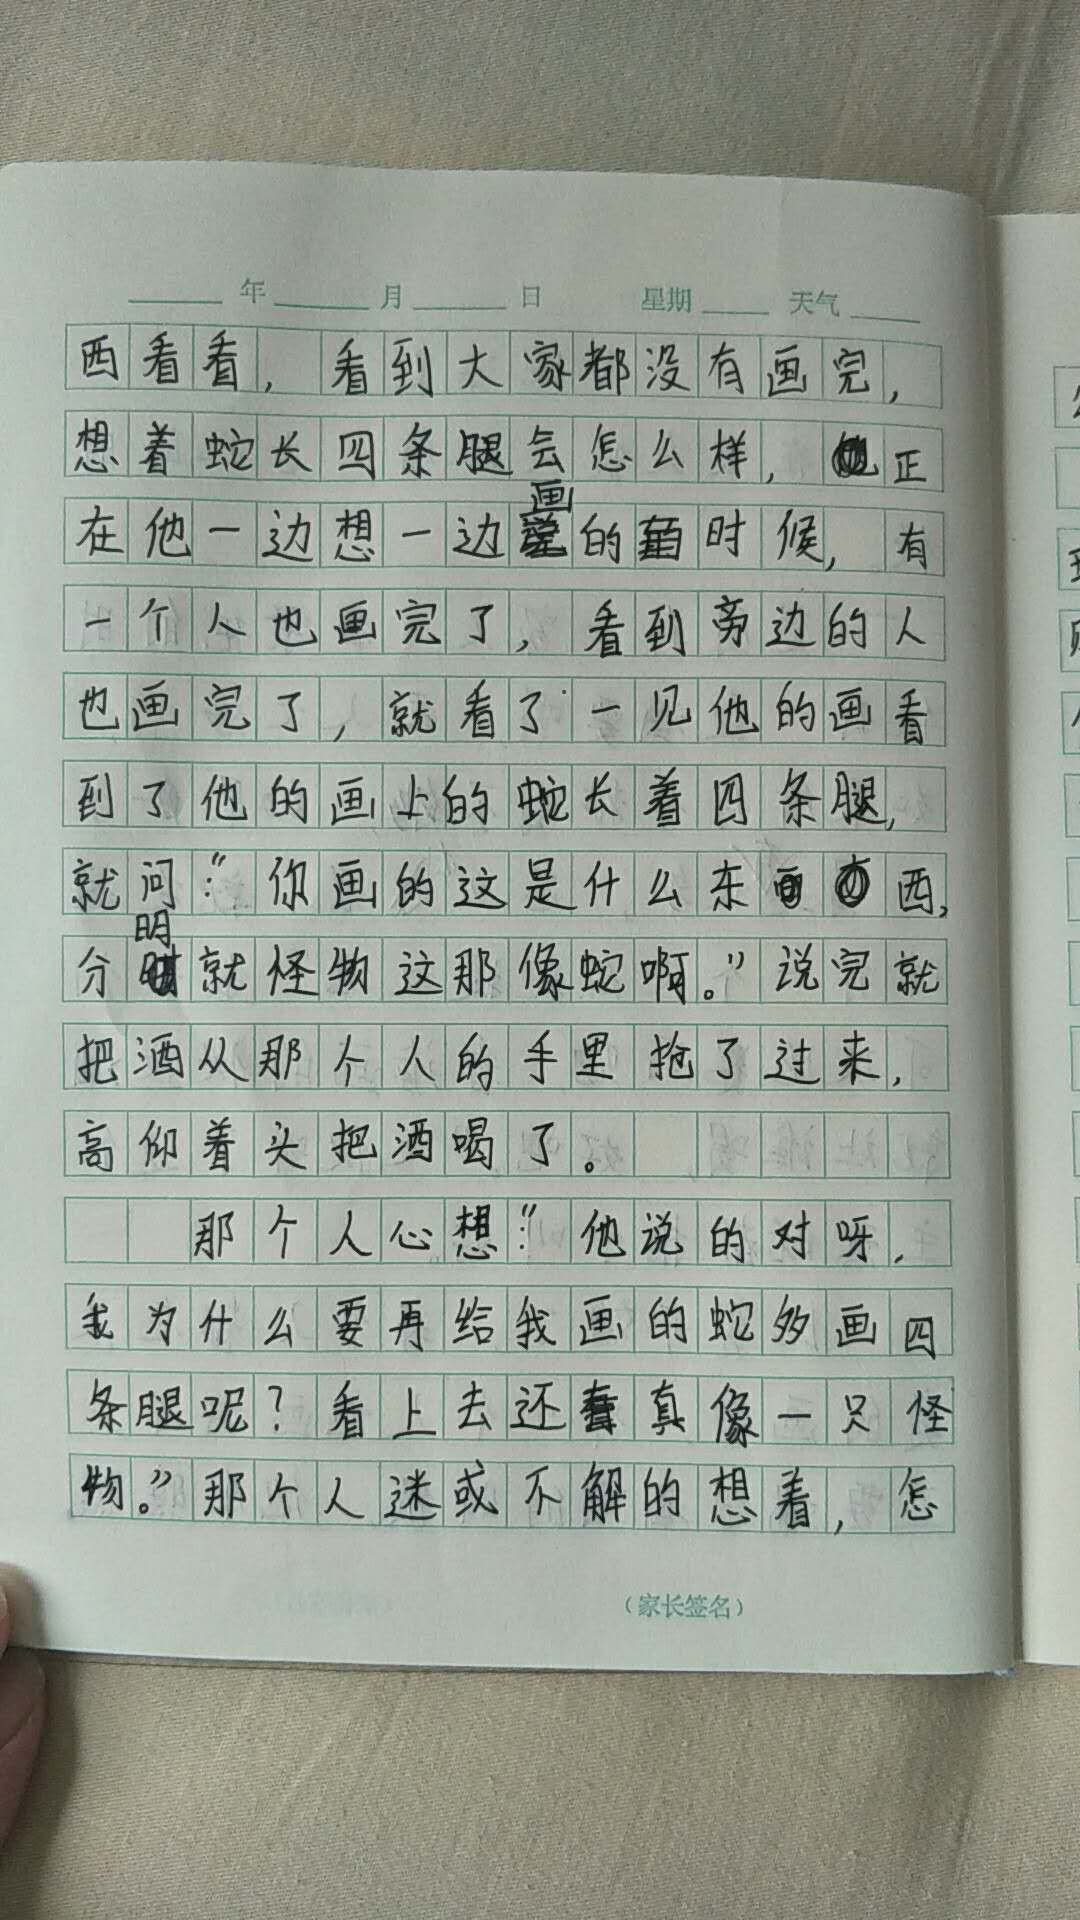 年 月 日 星期 天气
西看看，看到大家都没有画完，
想着蛇长四条腿会怎么样，正
在他一边想一边画的时候，有
一个人也画完了，看到旁边的人
也画完了，就看了一见他的画看
到了他的画上的蛇长着四条腿，
就问：“你画的这是什么东西，
分明就怪物这那像蛇啊。”说完就
把酒从那个人的手里抢了过来，
高仰着头把酒喝了。
那个人心想：“他说的对呀，
我为什么要再给我画的蛇多画四
条腿呢？看上去还真像一只怪
物。”那个人迷或不解的想着，怎
（家长签名）